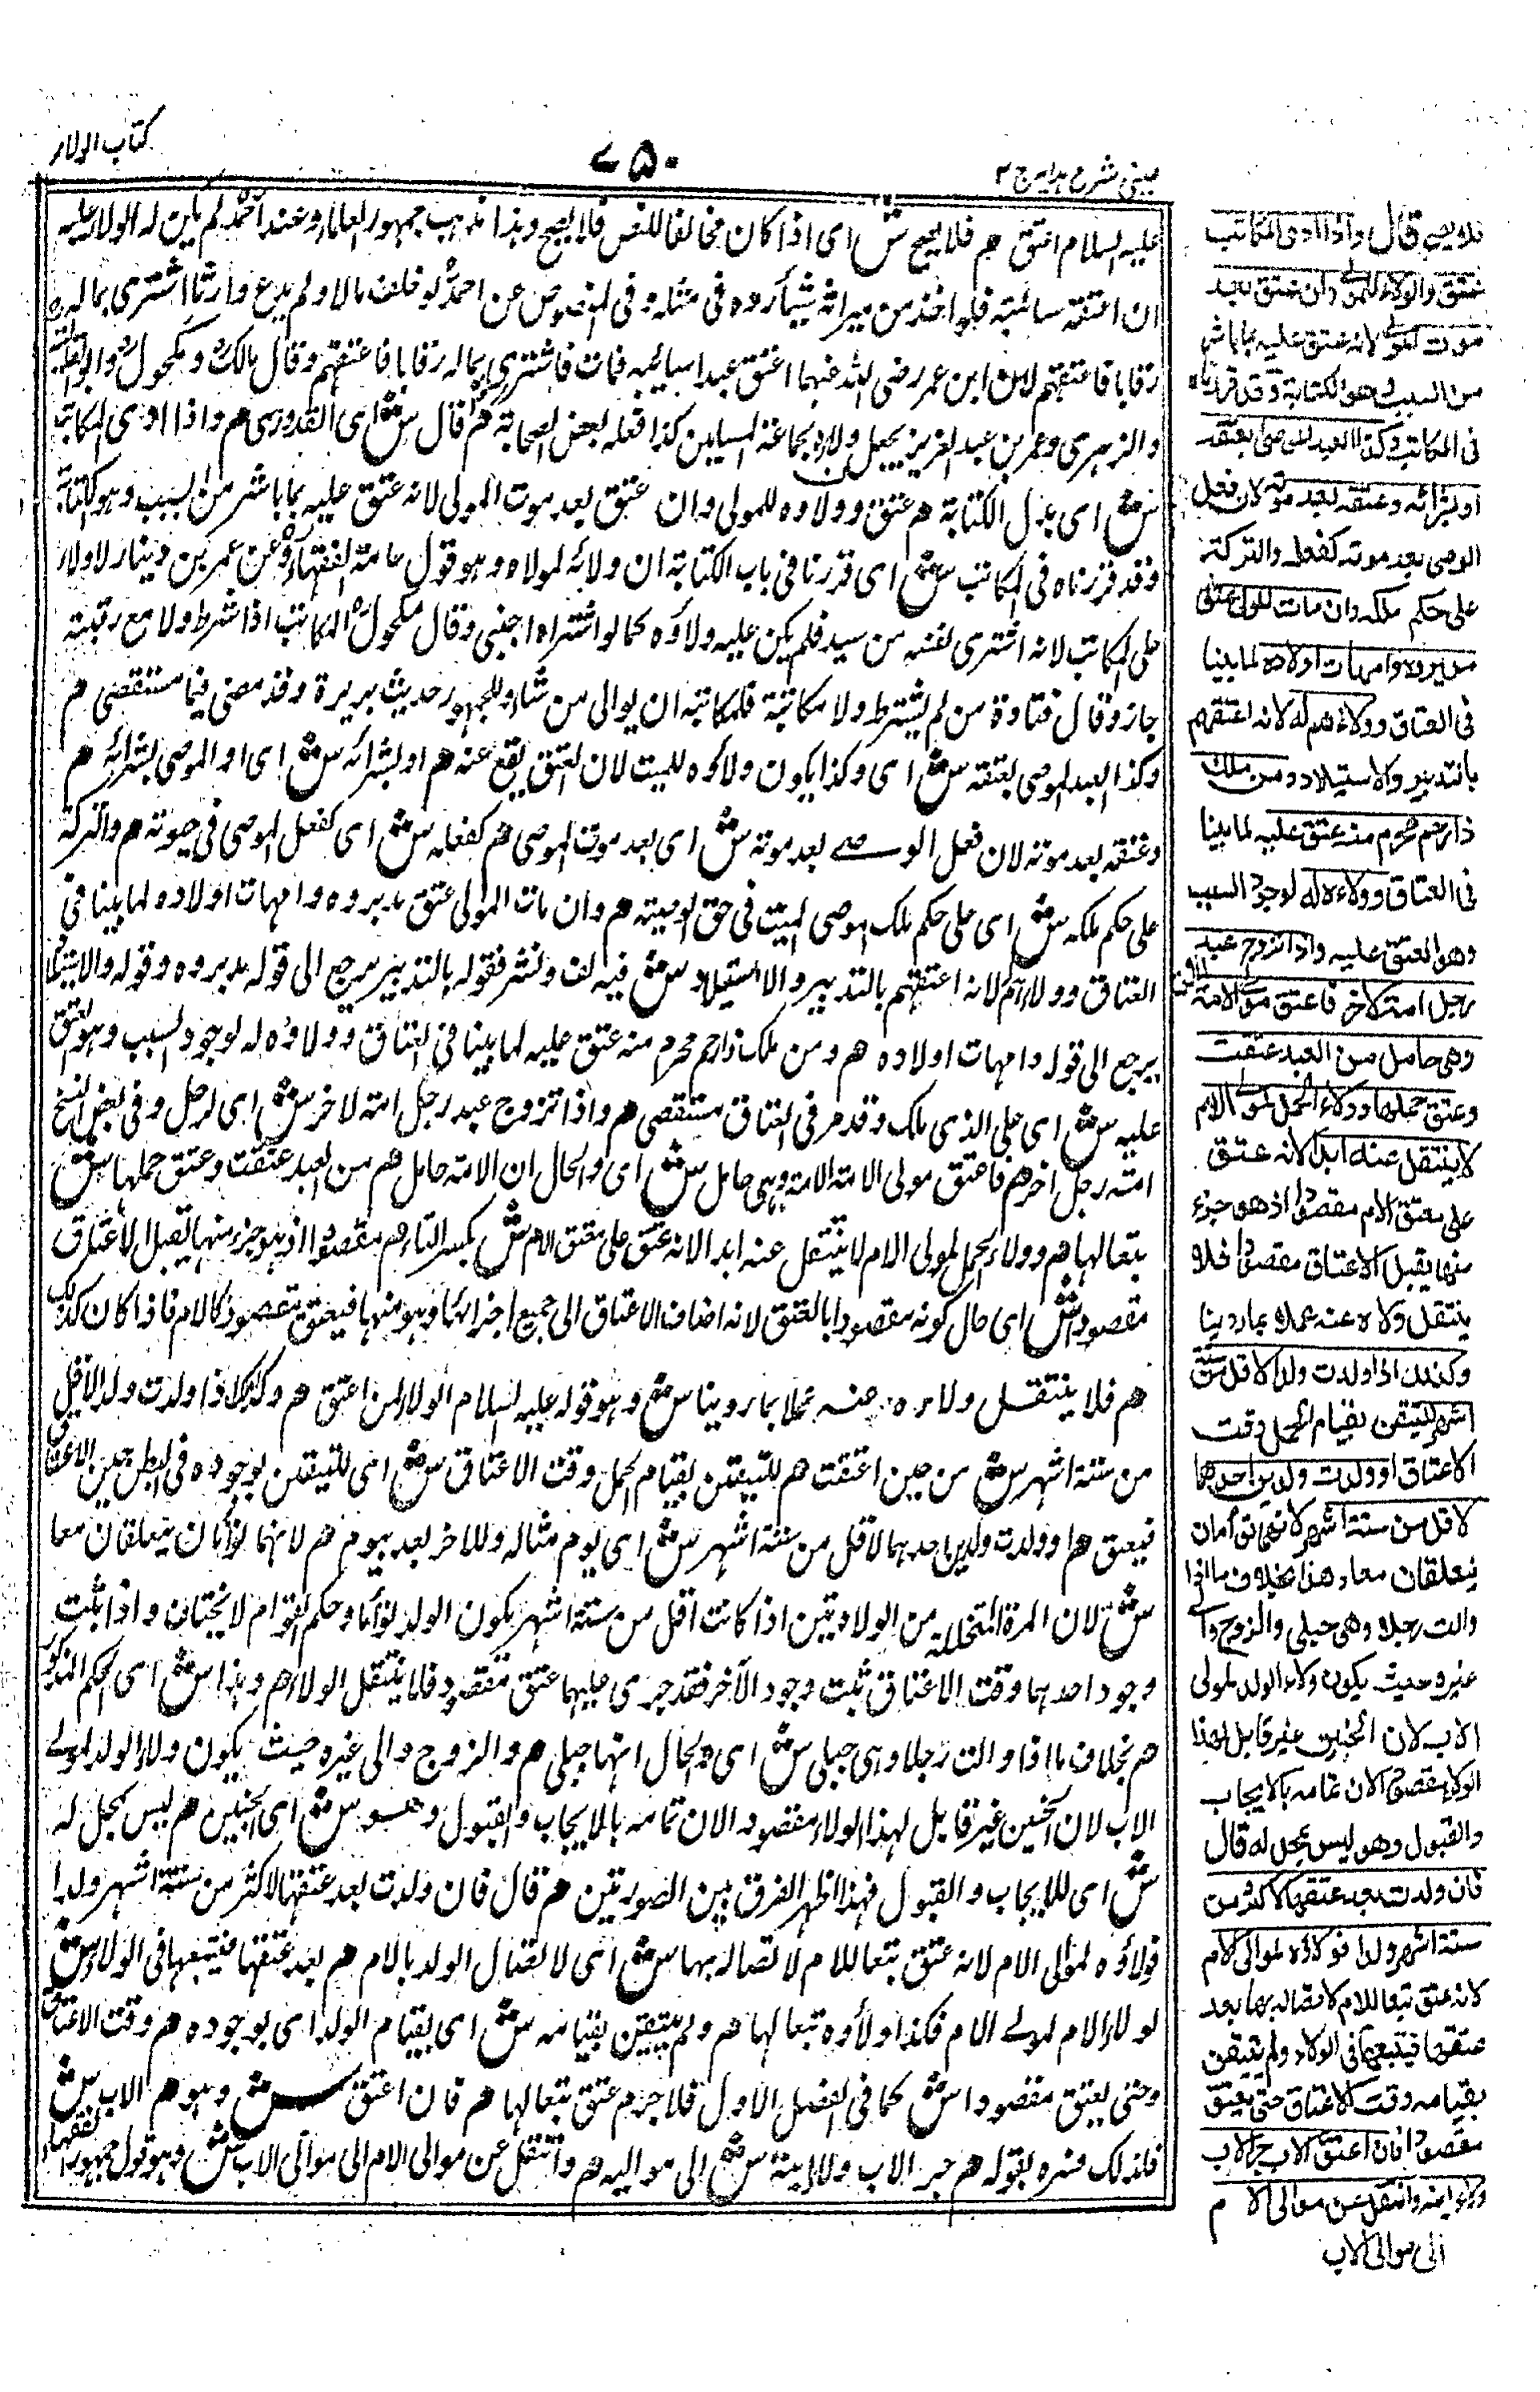 كتاب الولاء
٧٥٠
عینی شرح ہدایہ ج ٣
علیہ السلام اعتق ھم فلا یصح ش ای اذا کان مخالفا للنص فلا یصح وہذا مذہب جمہور العلماء وعند احمد لم یکن لہ الولاء علیہ
ان اعتقہ سائبتہ فلو اخذ من میراثہ شیئا ردہ فی مثلہ وفی المنصوص عن احمد لو خلف مالا ولم یدع وارثا اشتری بمالہ
رقابا فاعتقہم لان ابن عمر رضی اللہ عنہما اعتق عبدا سائبہ فمات فاشتری بمالہ رقابا فاعتقہم وقال مالک و مکحول وابو العالیہ
والزہری وعمر بن عبد العزیز یجعل ولاؤہ لجماعۃ المسلمین کذا فعلہ بعض الصحابۃ ھم قال ش ای القدوری ھم واذا ادی المکاتب
ش ای بدل الکتابۃ ھم عتق وولاوہ للمولی وان عتق بعد موت المولی لانہ عتق علیہ بما باشر من السبب وہو الکتابۃ
وقد قررناہ فی المکاتب ش ای قررنا فی باب الکتابۃ ان ولائہ لمولاہ وہو قول عامۃ الفقہاء وعن عمر بن دینار لا ولاء
علی المکاتب لانہ اشتری نفسہ من سید فلم یکن علیہ ولاؤہ کما لو اشتراہ اجنبی وقال مکحول المکاتب اذا شرط ولاء مع رقبتہ
جاز وقال قتادۃ من لم یشترط ولاء مکاتبۃ فلمکاتبہ ان یوالی من شاء وللجمہور حدیث بریرۃ وقد مضی فیما مستقصی ھم
وکذا العبد الموصی بعتقہ ش ای وکذا یکون ولاؤہ للمیت لان العتق یقع عنہ ھم او بشرائہ ش ای او الموصی بشرائہ ھم
وعتقہ بعد موتہ لان فعل الوصی بعد موتہ ش ای بعد موت الموصی ھم کفعلہ ش ای کفعل الموصی فی حیوتہ ھم والترکۃ
علی حکم ملکہ ش ای علی حکم ملک الموصی المیت فی حق الوصیتہ ھم وان مات المولی عتق مدبروہ وامہات اولادہ لما بینا فی
العتاق وولاءہم لہ لانہ اعتقہم بالتدبیر والاستیلاد ش فیہ لف ونشر فقولہ بالتدبیر یرجع الی قولہ مدبروہ وقولہ والاستیلاد
یرجع الی قولہ وامہات اولادہ ھم ومن ملک ذا رحم محرم منہ عتق علیہ لما بینا فی العتاق وولاؤہ لہ لوجود السبب وہو العتق
علیہ ش ای علی الذی ملک وقد مر فی العتاق مستقصی ھم واذا تزوج عبد رجل امتہ لاخر ش ای لرجل وفی بعض النسخ
امتہ رجل اخر ھم فاعتق مولی الامتہ الامتہ وہی حامل ش ای والحال ان الامتہ حامل ھم من العبد عتقت وعتق حملہا ش
تبعا لہا ھم وولاء الحمل لمولی الام لا ینتقل عنہ ابدا لانہ عتق علی معتق الام ش بکسر التاء ھم مقصودا اذ ہو جزء منہا یقبل الاعتاق
مقصودا ش ای حال کونہ مقصودا بالعتق لانہ اضاف الاعتاق الی جمیع اجزائہا وہو منہا فیعتق مقصودا کالام فاذا کان کذلک
ھم فلا ینتقل ولاءہ عنہ عملا بما روینا ش وہو قولہ علیہ السلام الولاء لمن اعتق ھم وکذلک اذا ولدت ولدا لاقل
من ستۃ اشہر ش من حین اعتقت ھم للتیقن بقیام الحمل وقت الاعتاق ش ای للتیقن بوجودہ فی البطن حین الاعتاق
فیعتق ھم او ولدت ولدین احدہما لاقل من ستۃ اشہر ش ای یوم مثالہ والاخر بعد بیوم ھم لانہما توأمان یتعلقان معا
ش لان المدۃ المتخللۃ من الولادتین اذا کانت اقل من ستۃ اشہر یکون الولد توأما وحکم التوام لا یختلف واذا ثبت
وجود احدہما وقت الاعتاق ثبت وجود الآخر فقد جری علیہما عتق مقصود فلا ینتقل الولاء ھم وہذا ش ای الحکم المذکور
ھم بخلاف ما اذا والت رجلا وہی حبلی ش ای والحال انہا حبلی ھم والزوج والی غیرہ حیث یکون ولاء الولد لمولی
الاب لان الجنین غیر قابل لہذا الولاء مقصودا لان تمامہ بالایجاب والقبول وہو ش ای الجنین ھم لیس بمحل لہ
ش ای للایجاب والقبول فہذا اظہر الفرق بین الصورتین ھم قال فان ولدت بعد عتقہا لاکثر من ستۃ اشہر ولدا
فولاؤہ لمولی الام لانہ عتق تبعا للام لاتصالہ بہا ش ای لاتصال الولد بالام ھم بعد عتقہا فیتبعہا فی الولاء ش
لو لاء الام لمولی الام فکذا ولاؤہ تبعا لہا ھم ولم یتیقن بقیامہ ش ای بقیام الولد ای بوجودہ ھم وقت الاعتاق
وحتی یعتق مقصودا ش کما فی الفصل الاول فلا جرم عتق تبعا لہا ھم فان اعتق ش وہو ھم الاب ش
فلذلک فسرہ بقولہ ھم جر الاب ولاء ابنہ ش الی موالیہ ھم وانتقل عن موالی الام الی موالی الاب ش وہو قول جمہور الفقہاء
فلا یصح قال واذا ادی المکاتب
عتق والولاء للمولی وان عتق بعد
موت المولی لانہ عتق علیہ بما باشر
من السبب وھو الکتابۃ وقد قررناہ
فی المکاتب وکذا العبد الموصی بعتقہ
او بشرائہ وعتقہ بعد موتہ لان فعل
الوصی بعد موتہ کفعلہ والترکۃ
علی حکم ملکہ وان مات المولی عتق
مدبروہ وامہات اولادہ لما بینا
فی العتاق وولاءھم لہ لانہ اعتقھم
بالتدبیر والاستیلاد ومن ملک
ذا رحم محرم منہ عتق علیہ لما بینا
فی العتاق وولاءہ لہ لوجود السبب
وھو العتق علیہ واذا تزوج عبد
رجل امۃ لآخر فاعتق مولی الامۃ الامۃ
وھی حامل من العبد عتقت
وعتق حملھا وولاء الحمل لمولی الام
لا ینتقل عنہ ابدا لانہ عتق
علی معتق الام مقصودا اذ ھو جزء
منھا یقبل الاعتاق مقصودا فلا
ینتقل ولاءہ عنہ عملا بما روینا
وکذلک اذا ولدت ولدا لاقل من ستۃ
اشھر للتیقن بقیام الحمل وقت
الاعتاق او ولدت ولدین احدھما
لاقل من ستۃ اشھر لانھما توأمان
یتعلقان معا وھذا بخلاف ما اذا
والت رجلا وھی حبلی والزوج والی
غیرہ حیث یکون ولاء الولد لمولی
الاب لان الجنین غیر قابل لھذا
الولاء مقصودا لان تمامہ بالایجاب
والقبول وھو لیس بمحل لہ قال
فان ولدت بعد عتقھا لاکثر من
ستۃ اشھر ولدا فولاؤہ لموالی الام
لانہ عتق تبعا للام لاتصالہ بھا بعد
عتقھا فیتبعھا فی الولاء ولم یتیقن
بقیامہ وقت الاعتاق حتی یعتق
مقصودا فان اعتق الاب جر الاب
ولاء ابنہ وانتقل عن موالی الام
الی موالی الاب